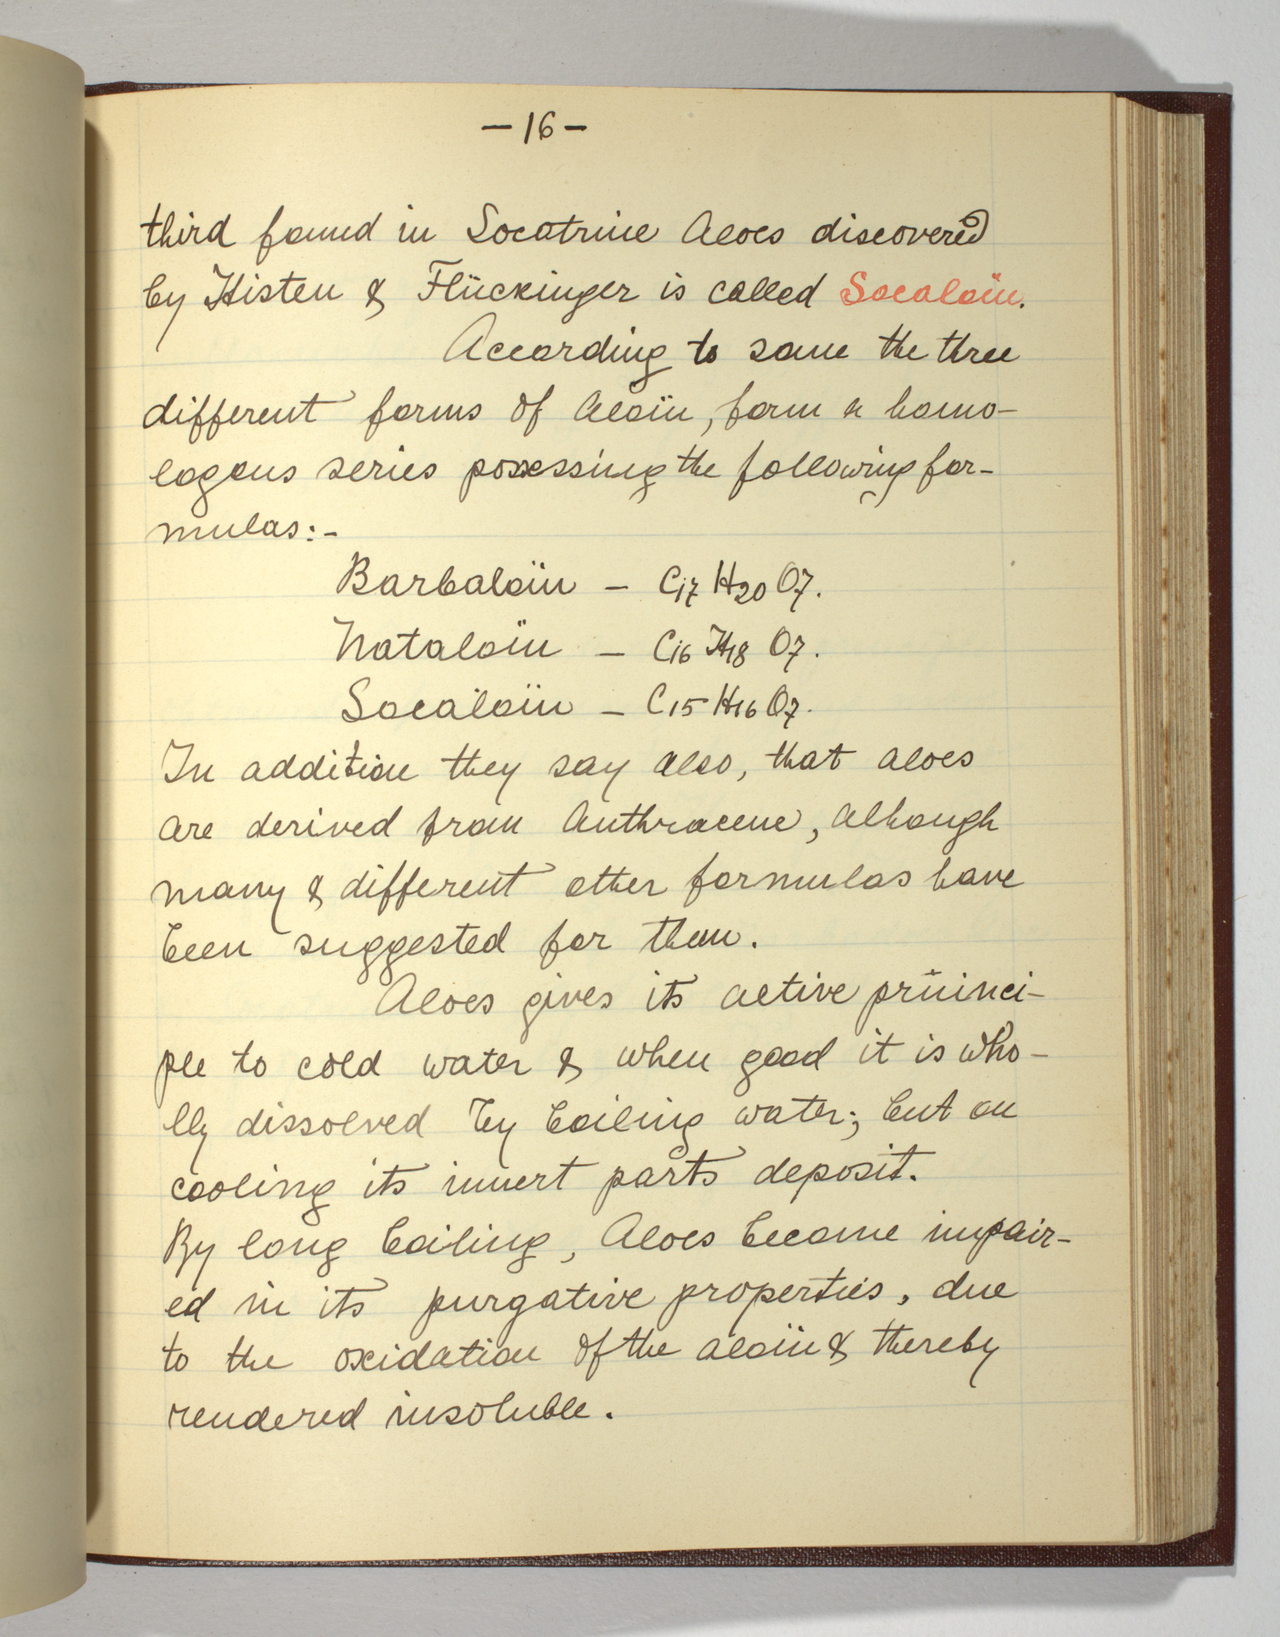 -16-
third found in Socotrine Aloes discovered
by Histen & Flückinger is called Socaloïn.
According to some the three
different forms of Aloïn, form a homo-
logous series possessing the following for-
mulas:-
Barbaloïn - C17 H20 O7.
Nataloïn - C16 H18 O7.
Socaloïn - C15 H16 O7.
In addition they say also, that aloes
are derived from Anthracene, although
many & different other formulas have
been suggested for them.
Aloes gives its active princi-
ple to cold water & when good it is who-
lly dissolved by boiling water; but on
cooling its innert parts deposit.
By long boiling, Aloes become impair-
ed in its purgative properties, due
to the oxidation of the aloïn & thereby
rendered insoluble.